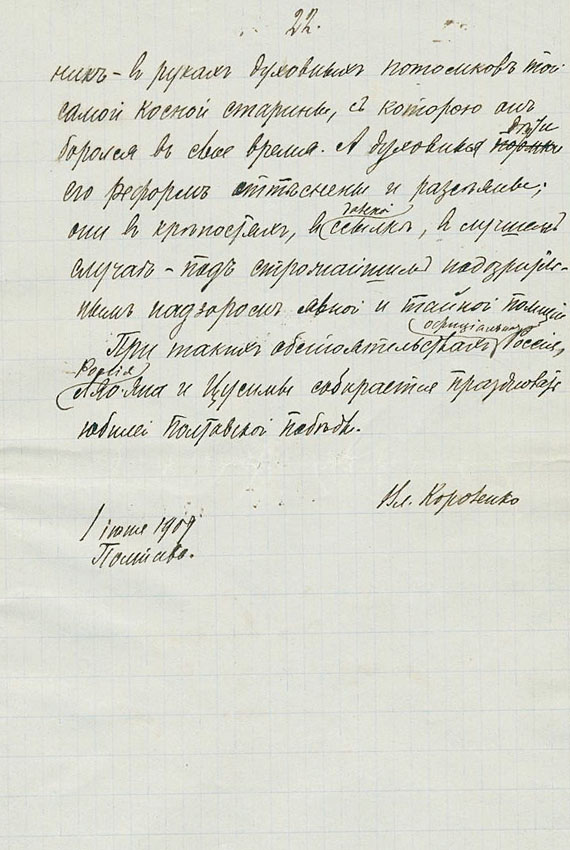 22.
никъ – въ рукахъ духовныхъ потомковъ той
самой косной старины, съ которою онъ
дѣти
боролся въ свое время. А духовныя
его реформъ оттѣснены и разсѣяны;
они въ крѣпостяхъ, въ ссылкѣ, въ лучшемъ
случаѣ – подъ строжайшимъ подозритель-
нымъ надзоромъ явной и тайной полиціи
оффиціальная
При такихъ обстоятельствахъ Россія,
Россія
Ляояна и Цусимы собирается праздновать
юбилей Полтавской побѣды.
Вл. Короленко
1 іюня 1909
Полтава.